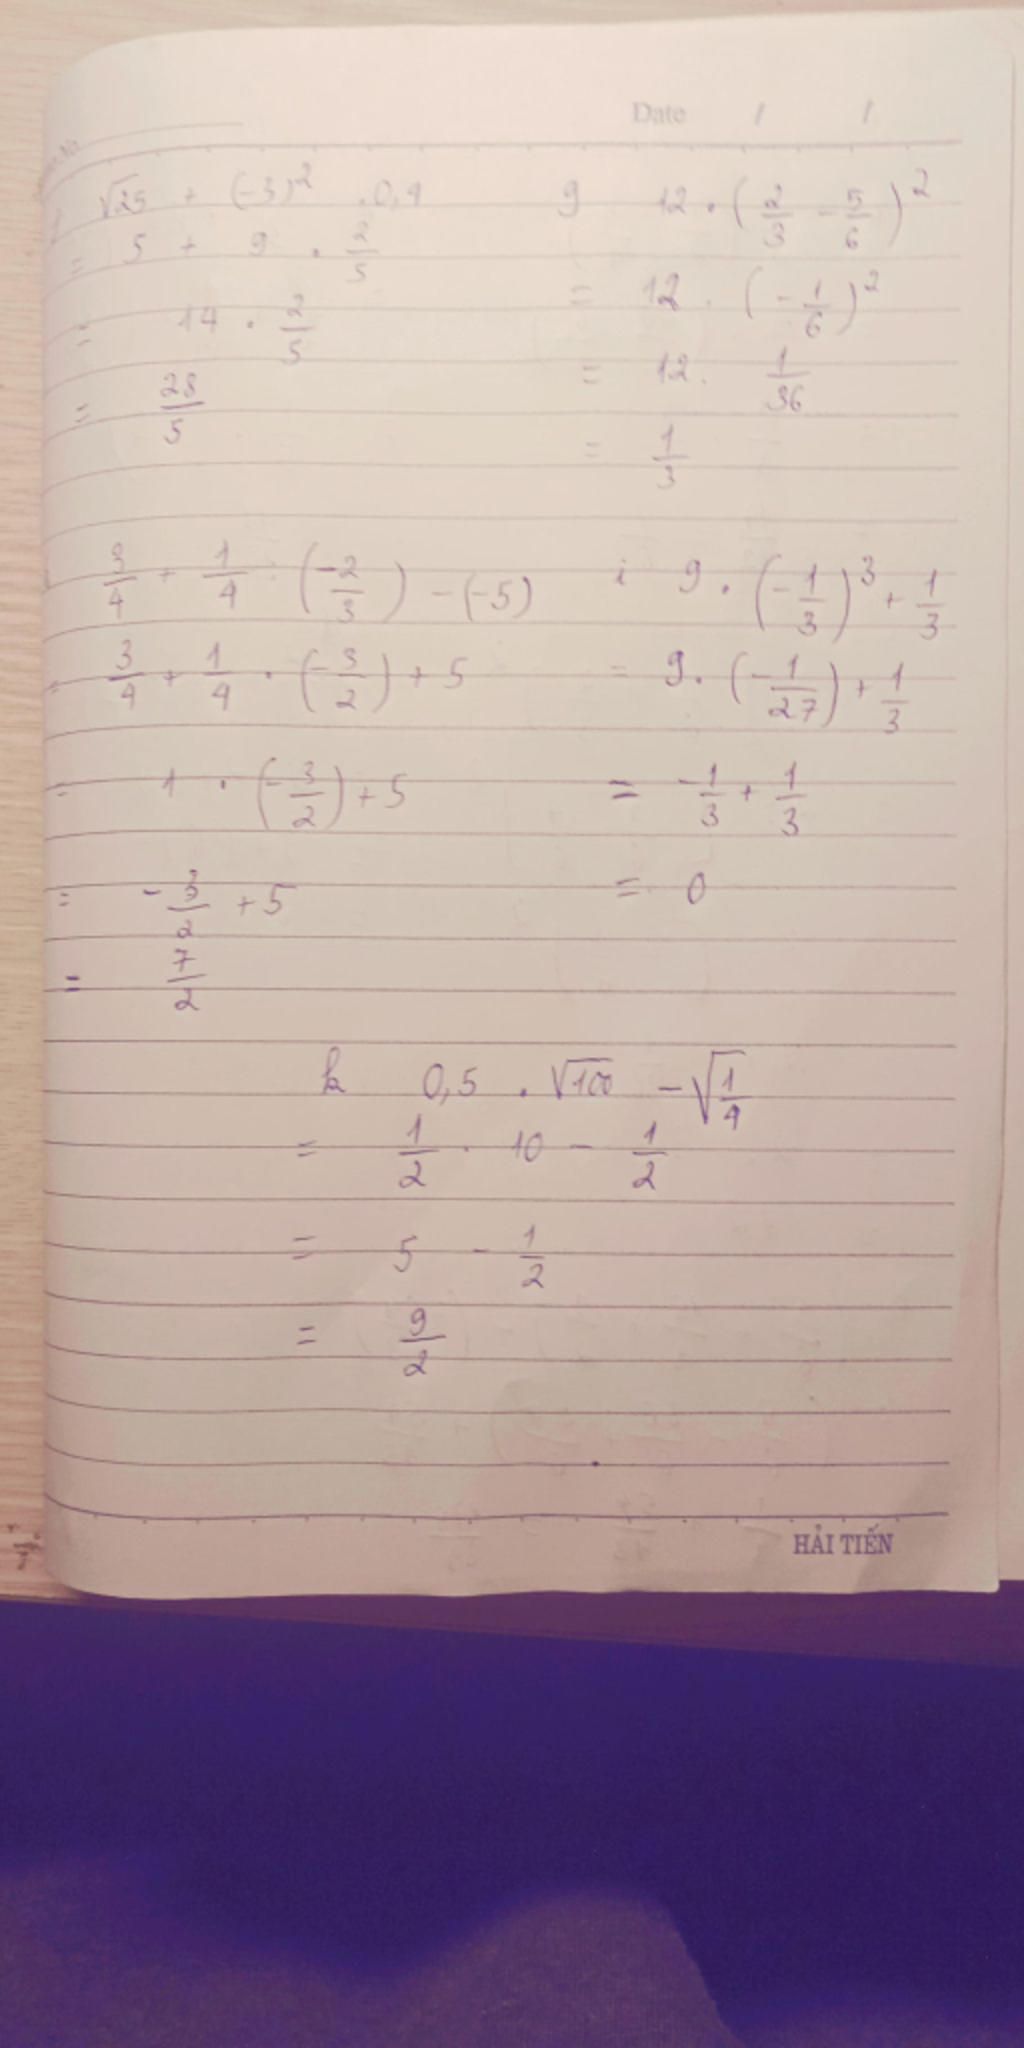 Date / /
√25 + (-3)² . 0,4
= 5 + 9 . 2/5
= 14 . 2/5
= 28/5
g 12 . (2/3 - 5/6)²
= 12 . (-1/6)²
= 12 . 1/36
= 1/3
3/4 + 1/4 : (-2/3) - (-5)
= 3/4 + 1/4 . (-3/2) + 5
= 1 . (-3/2) + 5
= -3/2 + 5
= 7/2
i 9 . (-1/3)³ + 1/3
= 9 . (-1/27) + 1/3
= -1/3 + 1/3
= 0
k 0,5 . √100 - √1/4
= 1/2 . 10 - 1/2
= 5 - 1/2
= 9/2
HẢI TIẾN